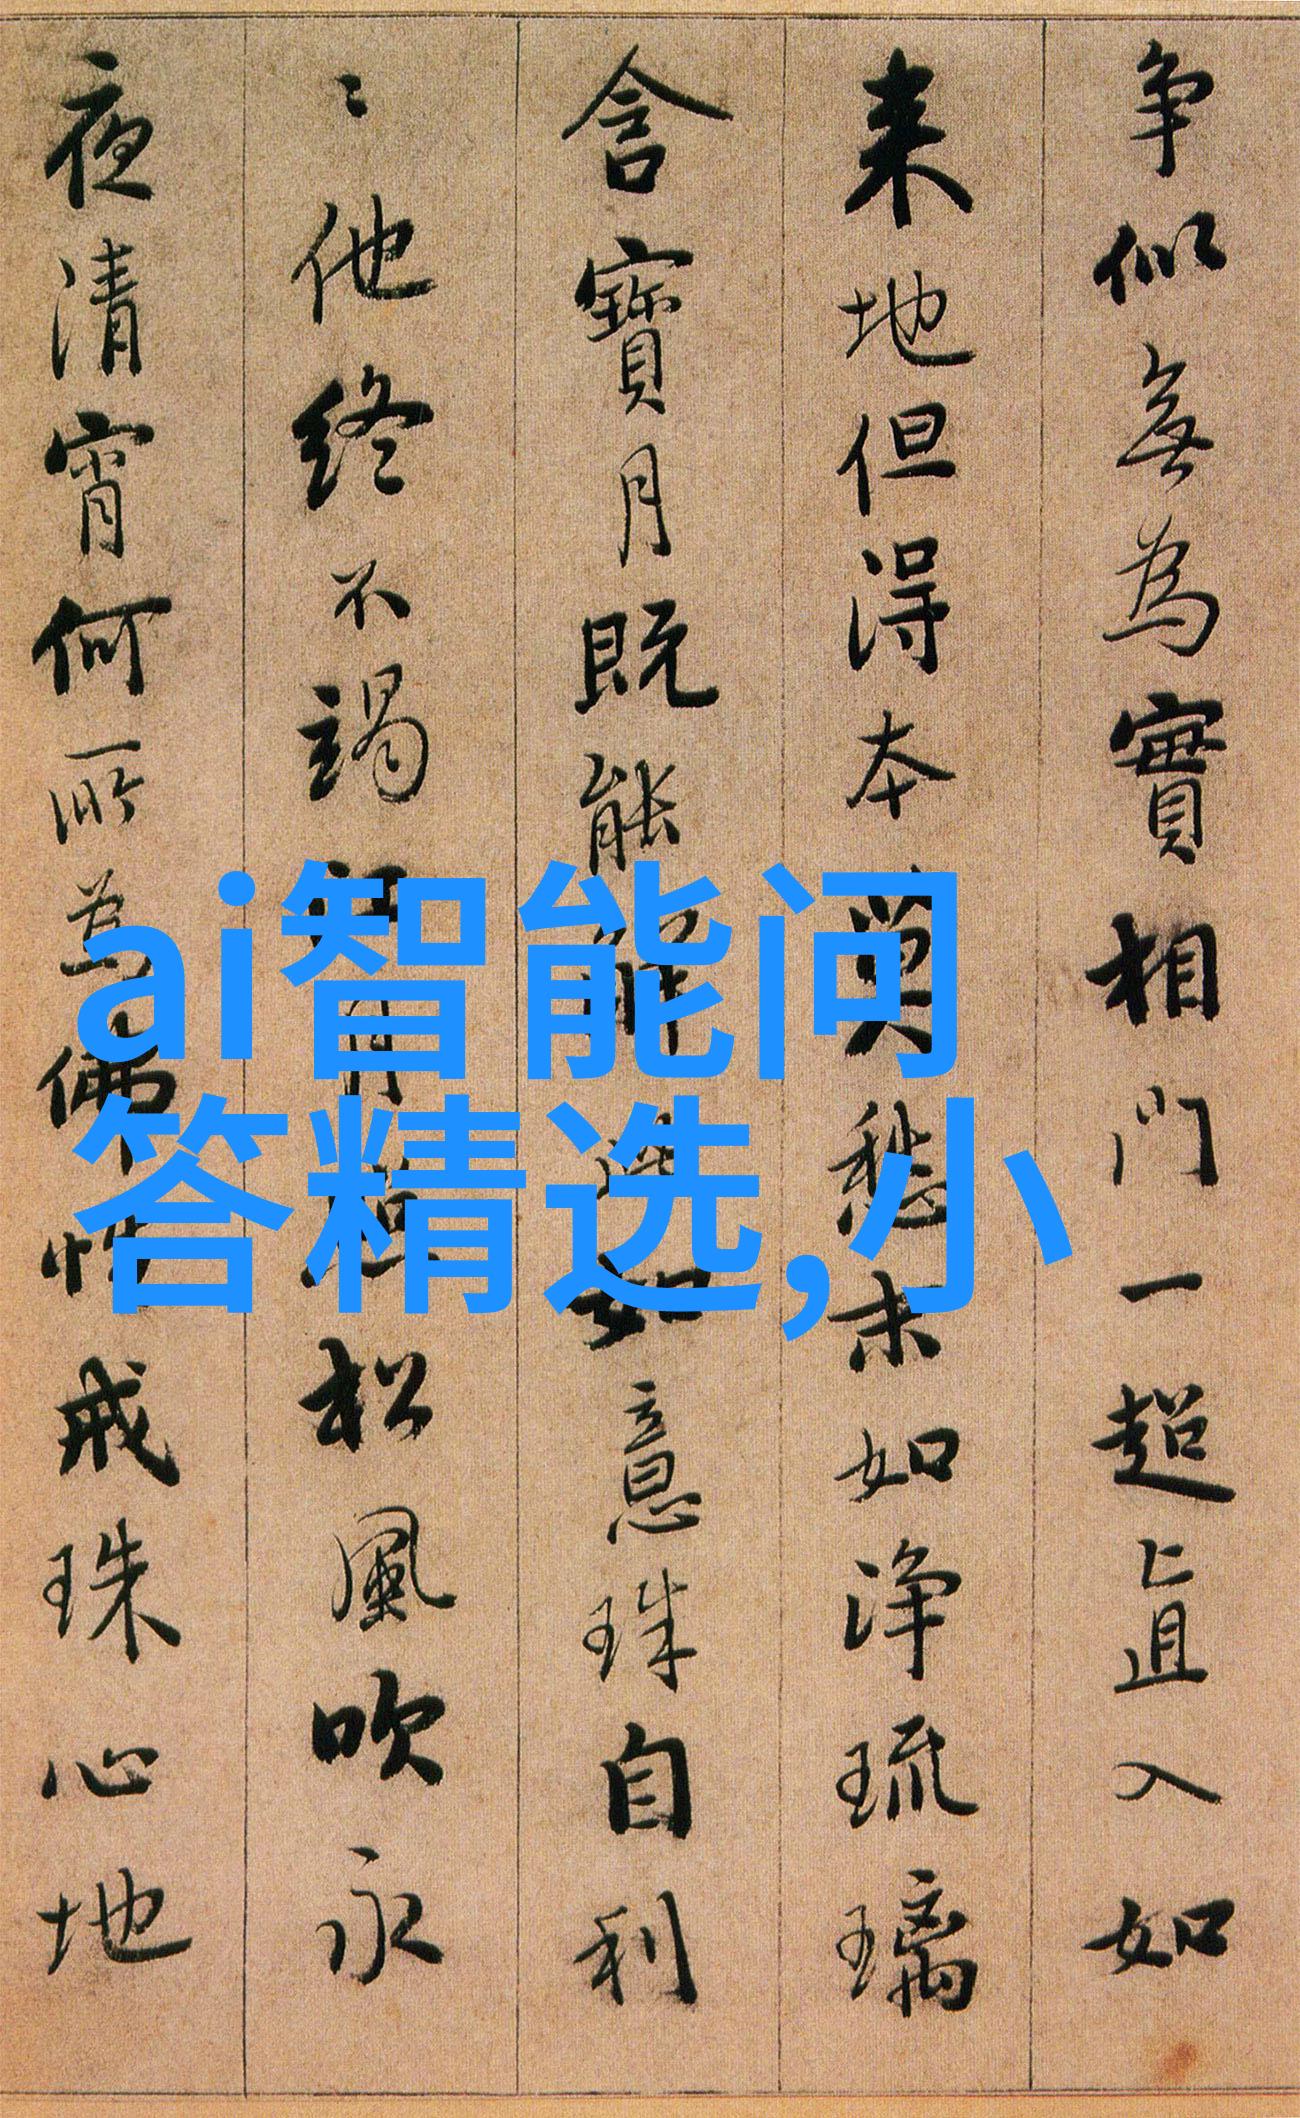 争似無為實相門一超直入如
来地但得本莫愁末如淨琉璃
含寶月既能解如意珠自利
〻他終不竭月松風吹永
夜清宵何所為佛性戒珠心地
ai智能问
答精选,小